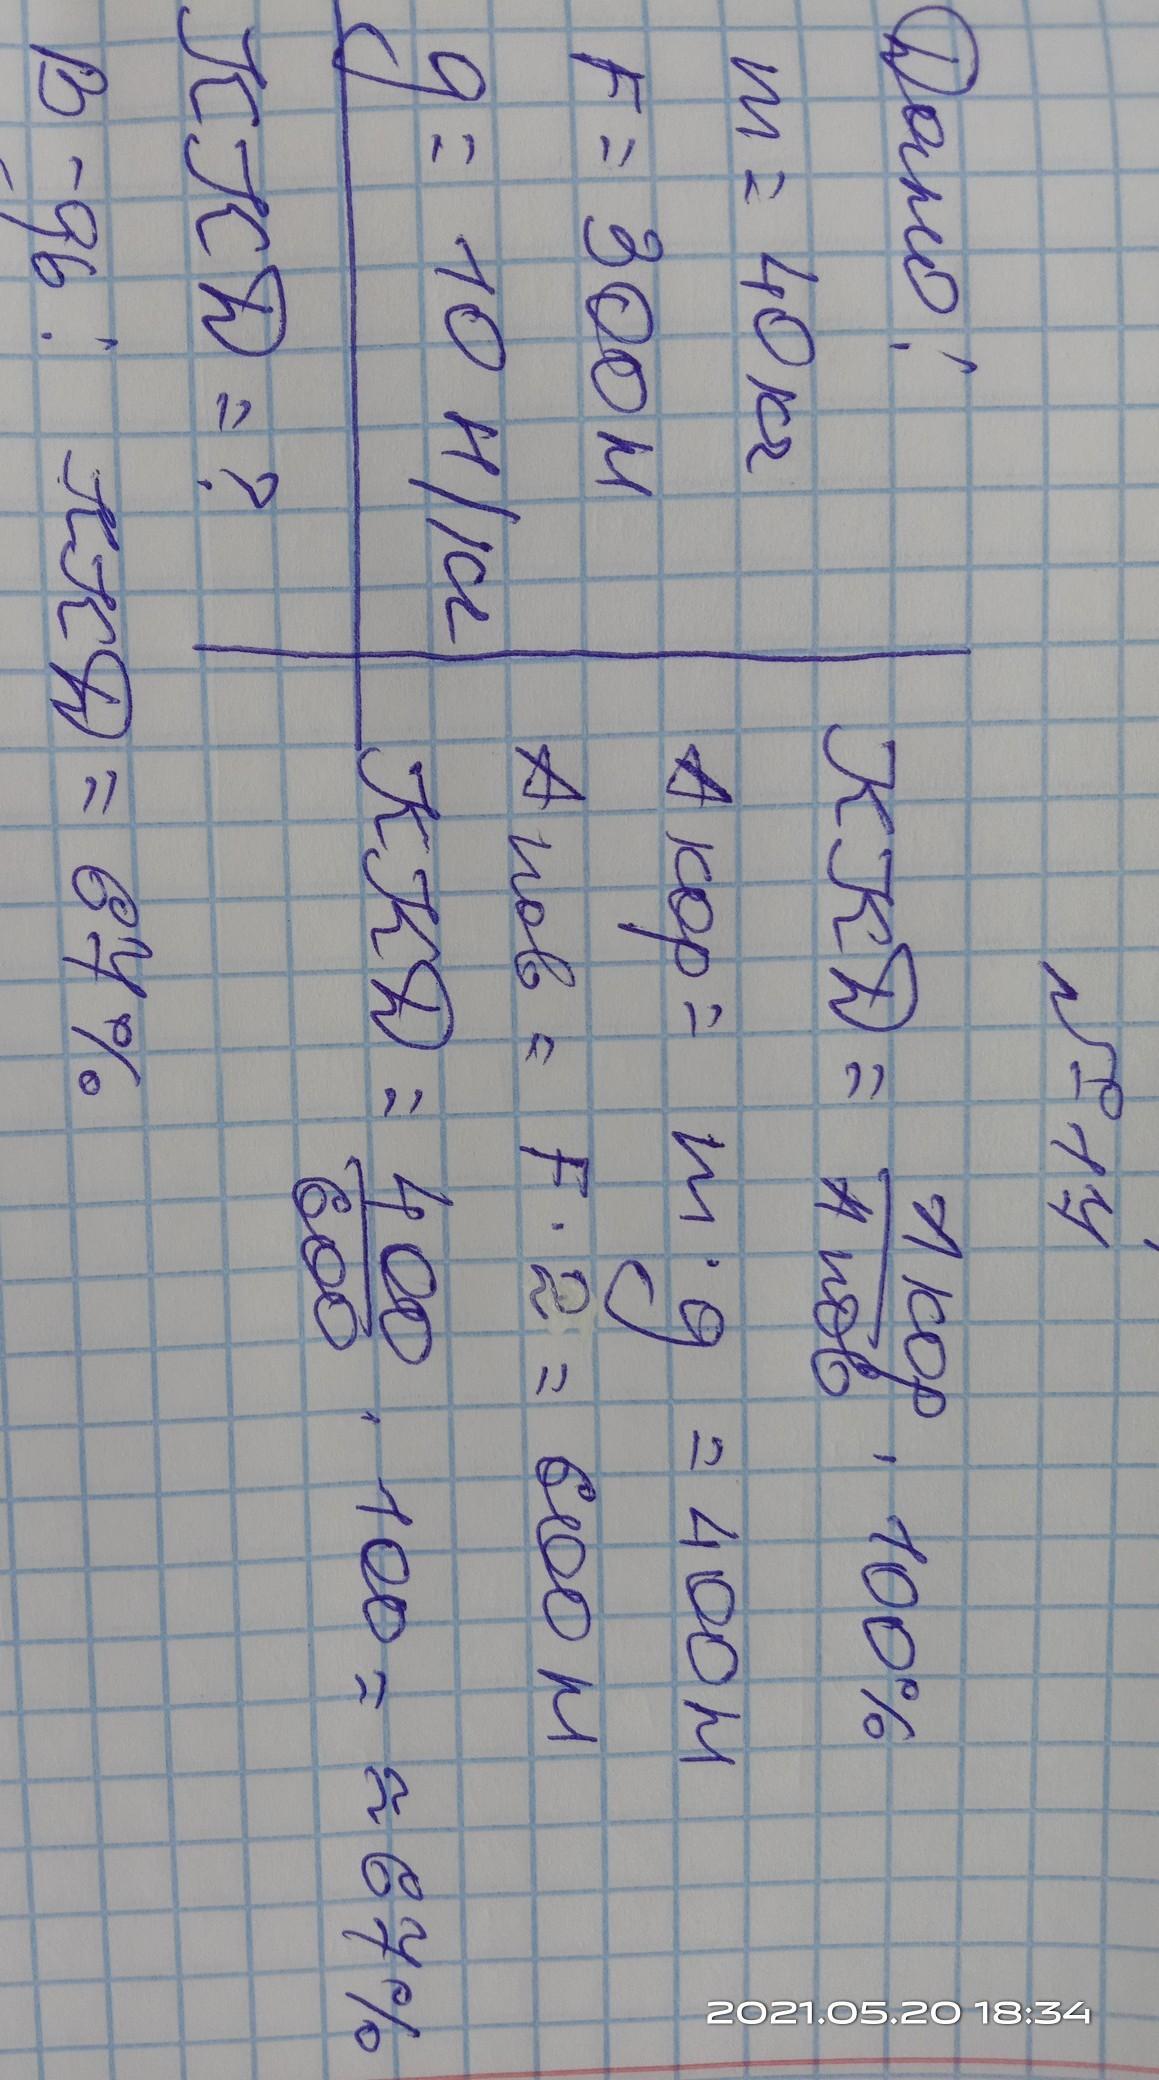 № 17
Дано:
m = 40 кг
F = 300 Н
g = 10 Н/кг
ККД = ?
ККД = А кор / А пов · 100%
А кор = m · g = 400 Н
А пов = F · 2 = 600 Н
ККД = 400 / 600 · 100 = ≈ 67%
В - дь : ККД = 67%
2021.05.20 18:34